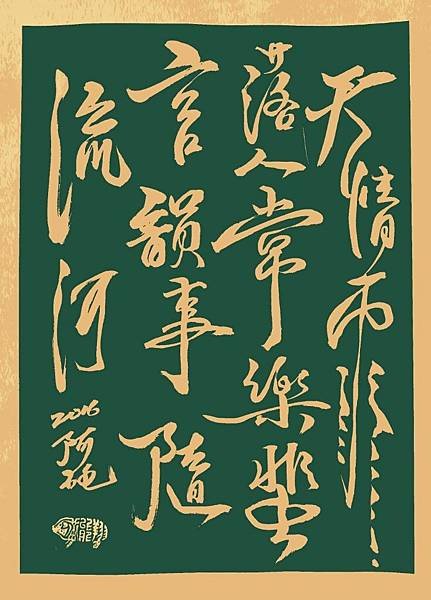 天情雨
落人常樂蜚
言韻事隨
流河
2016
阿